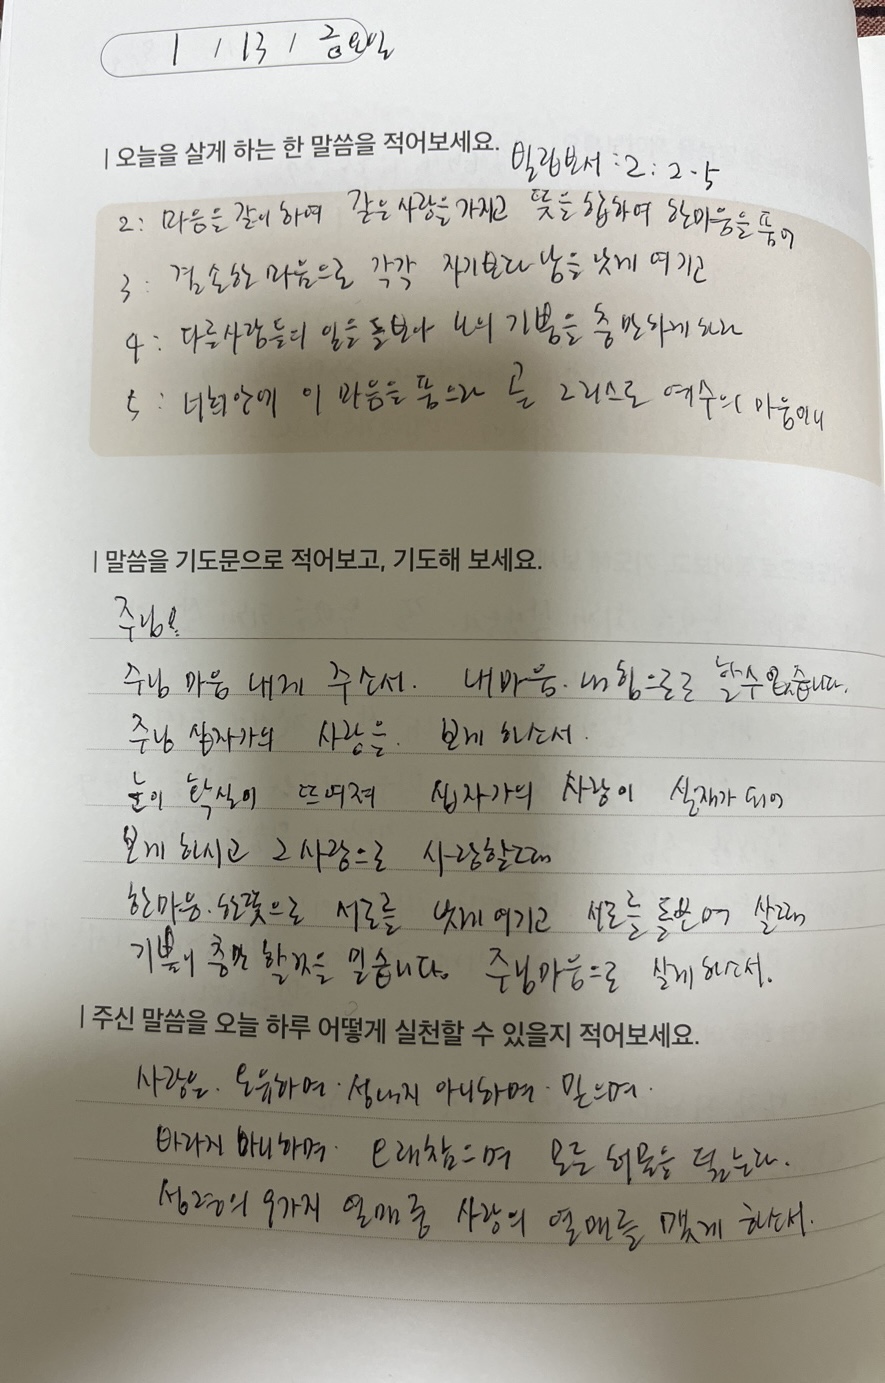 1 / 13 / 금요일
| 오늘을 살게 하는 한 말씀을 적어보세요. 빌립보서 : 2 : 2-5
2 : 마음을 같이 하여 같은 사랑을 가지고 뜻을 합하여 한마음을 품어
3 : 겸손한 마음으로 각각 자기보다 남을 낫게 여기고
4 : 다른사람들의 일을 돌보아 나의 기쁨을 충만하게 하라
5 : 너희안에 이 마음을 품으라 곧 그리스도 예수의 마음이니
| 말씀을 기도문으로 적어보고, 기도해 보세요.
주님!
주님 마음 내게 주소서. 내마음. 내 힘으로는 할수 없습니다.
주님 십자가의 사랑을. 보게 하소서.
눈이 확실이 뜨여져 십자가의 사랑이 실재가 되어
보게 하시고 그 사랑으로 사랑할때
한마음. 한뜻으로 서로를 낫게 여기고 서로를 돌보며 살때
기쁨이 충만 할것을 믿습니다. 주님마음으로 살게 하소서.
| 주신 말씀을 오늘 하루 어떻게 실천할 수 있을지 적어보세요.
사랑은. 온유하며. 성내지 아니하며. 믿으며.
바라지 아니하며. 오래참으며 모든 허물을 덮는다.
성령의 9가지 열매중 사랑의 열매를 맺게 하소서.